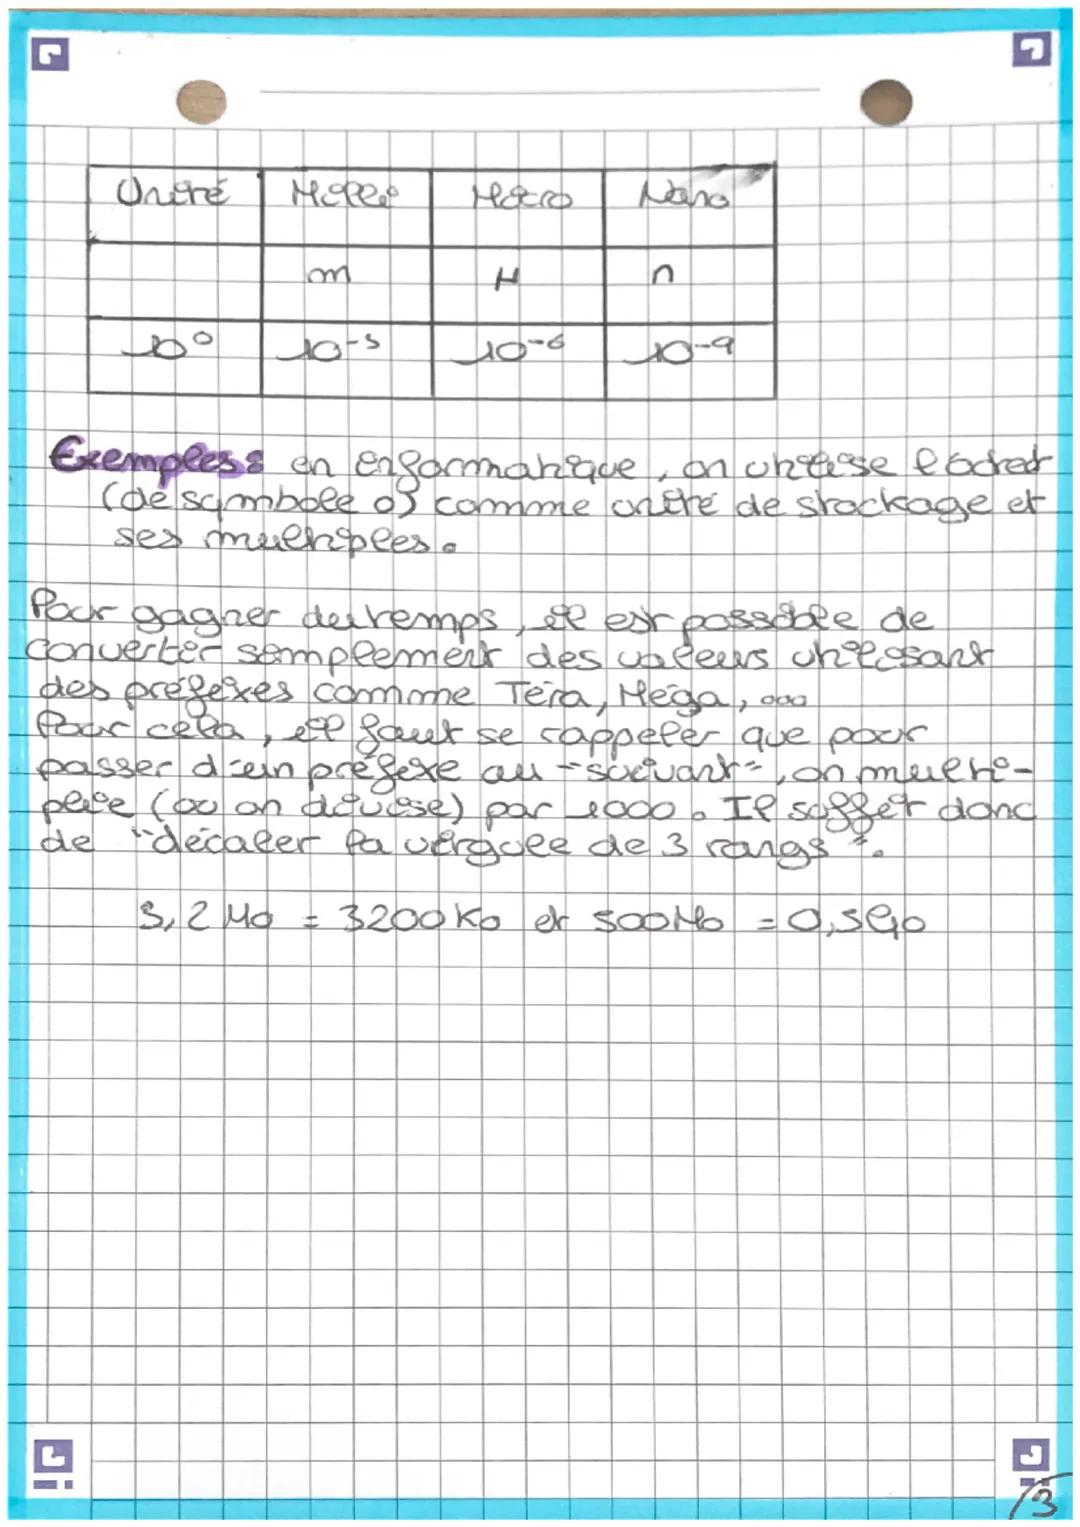 Unité Milli Micro Nano
m μ n
10⁰ 10⁻³ 10⁻⁶ 10⁻⁹
Exemples : en informatique, on utilise l'octet
(de symbole o) comme unité de stockage et
ses multiples.
Pour gagner du temps, il est possible de
convertir simplement des valeurs utilisant
des préfixes comme Téra, Méga, ...
Pour cela, il faut se rappeler que pour
passer d'un préfixe au "suivant", on multi-
plie (ou on divise) par 1000. Il suffit donc
de "décaler la virgule de 3 rangs".
3,2 Mo = 3200 Ko et 500 Mo = 0,5 Go
/3